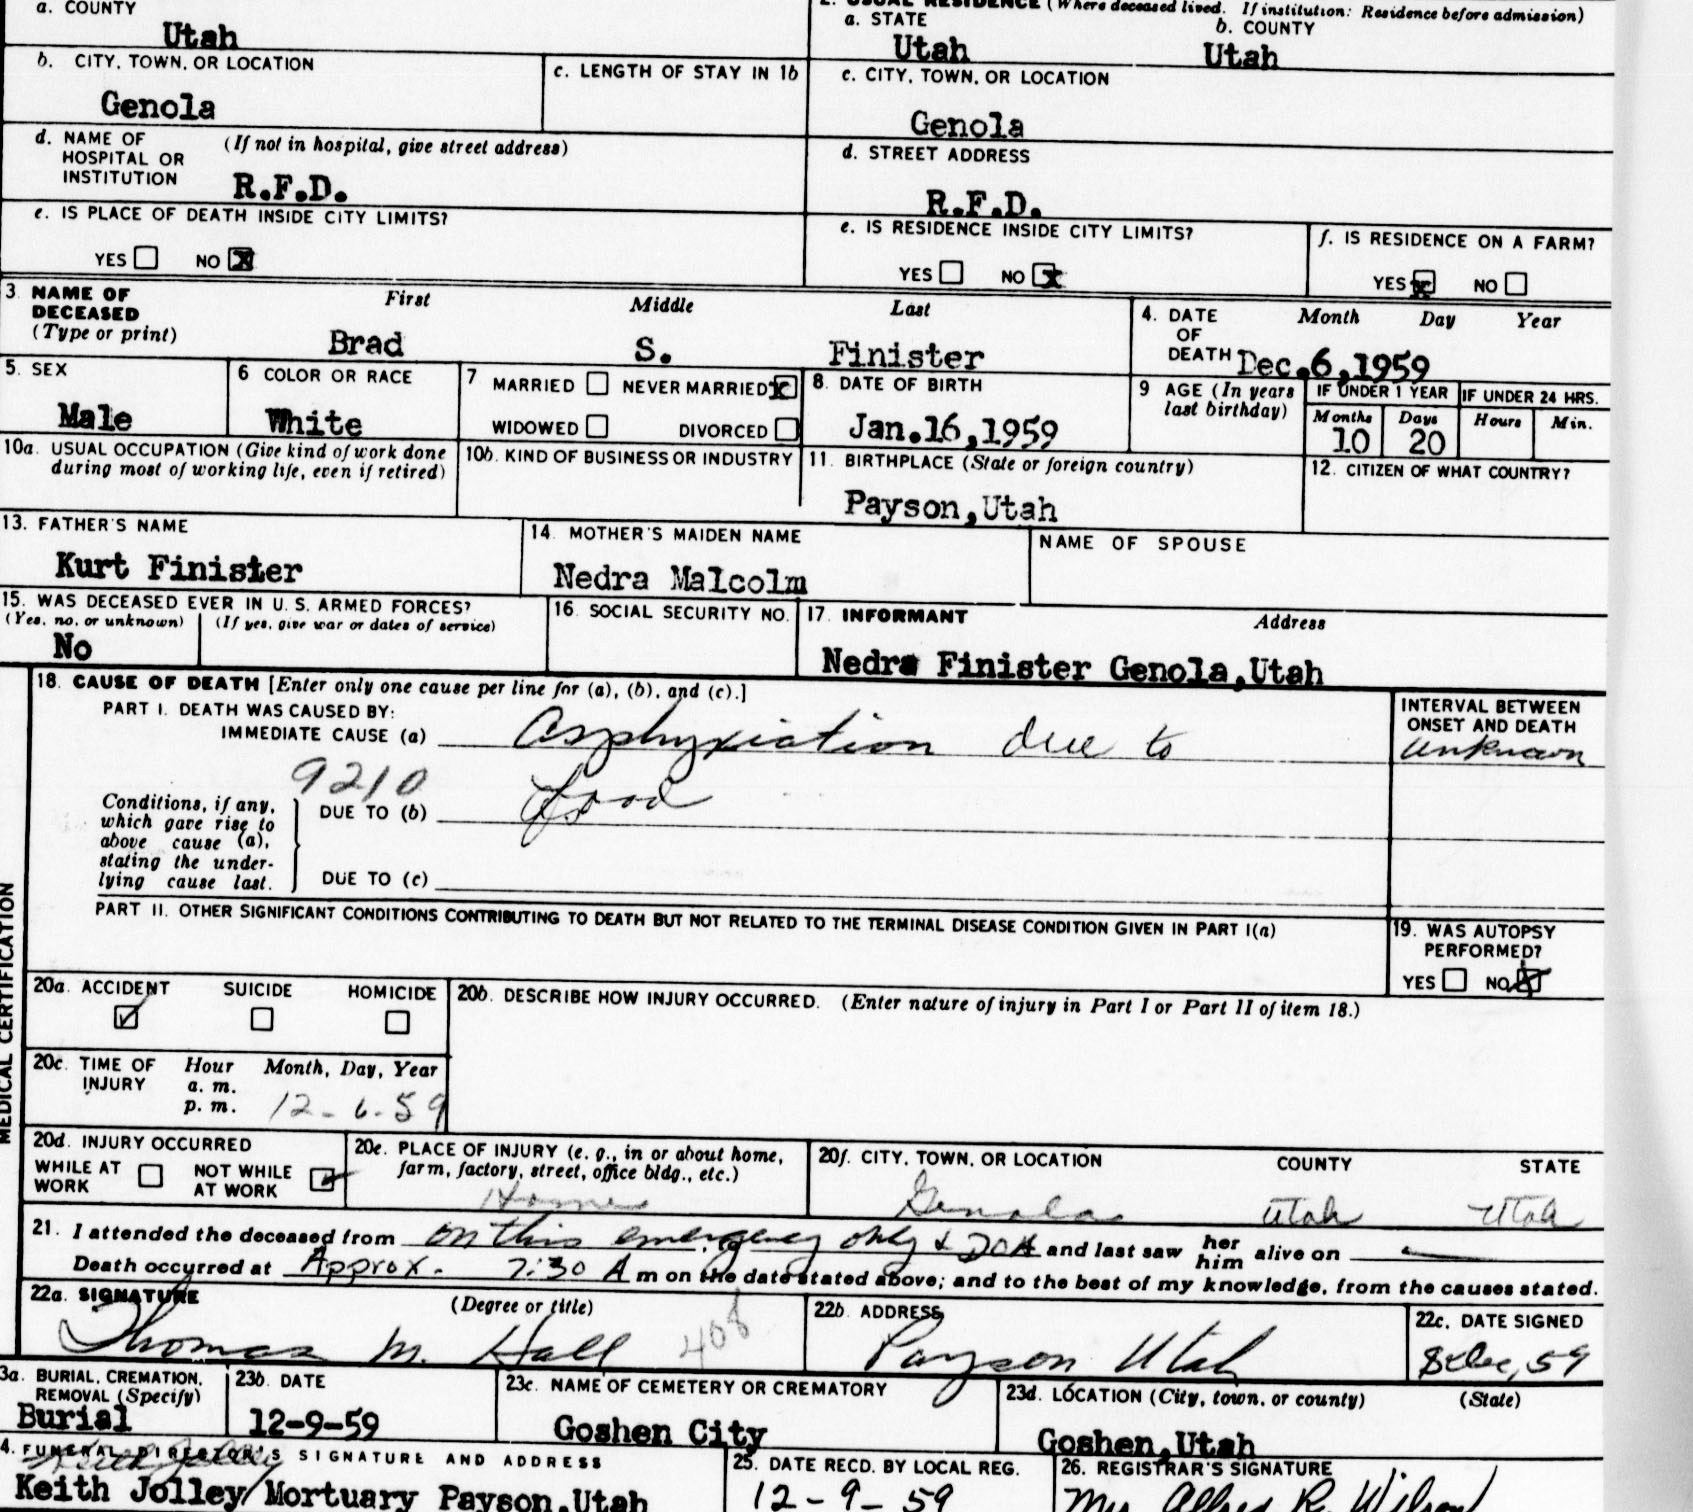 a. COUNTY
Utah
2. USUAL RESIDENCE (Where deceased lived. If institution: Residence before admission)
a. STATE
Utah
b. COUNTY
Utah
b. CITY, TOWN, OR LOCATION
Genola
c. LENGTH OF STAY IN 1b
c. CITY, TOWN, OR LOCATION
Genola
d. NAME OF HOSPITAL OR INSTITUTION (If not in hospital, give street address)
R.F.D.
d. STREET ADDRESS
R.F.D.
e. IS PLACE OF DEATH INSIDE CITY LIMITS?
YES NO X
e. IS RESIDENCE INSIDE CITY LIMITS?
YES NO X
f. IS RESIDENCE ON A FARM?
YES X NO
3. NAME OF DECEASED (Type or print)
First Middle Last
Brad S. Finister
4. DATE OF DEATH
Month Day Year
Dec.6,1959
5. SEX
Male
6 COLOR OR RACE
White
7 MARRIED NEVER MARRIED X
WIDOWED DIVORCED
8. DATE OF BIRTH
Jan.16,1959
9 AGE (In years last birthday)
IF UNDER 1 YEAR
Months Days
10 20
IF UNDER 24 HRS.
Hours Min.
10a. USUAL OCCUPATION (Give kind of work done during most of working life, even if retired)
10b. KIND OF BUSINESS OR INDUSTRY
11. BIRTHPLACE (State or foreign country)
Payson,Utah
12. CITIZEN OF WHAT COUNTRY?
13. FATHER'S NAME
Kurt Finister
14. MOTHER'S MAIDEN NAME
Nedra Malcolm
NAME OF SPOUSE
15. WAS DECEASED EVER IN U. S. ARMED FORCES?
(Yes, no, or unknown) (If yes, give war or dates of service)
No
16. SOCIAL SECURITY NO.
17. INFORMANT Address
Nedra Finister Genola,Utah
18. CAUSE OF DEATH [Enter only one cause per line for (a), (b), and (c).]
PART I. DEATH WAS CAUSED BY:
IMMEDIATE CAUSE (a) Asphyxiation due to
9210
Conditions, if any, which gave rise to above cause (a), stating the underlying cause last.
DUE TO (b) food
DUE TO (c)
INTERVAL BETWEEN ONSET AND DEATH
unknown
PART II. OTHER SIGNIFICANT CONDITIONS CONTRIBUTING TO DEATH BUT NOT RELATED TO THE TERMINAL DISEASE CONDITION GIVEN IN PART I(a)
19. WAS AUTOPSY PERFORMED?
YES NO X
MEDICAL CERTIFICATION
20a. ACCIDENT SUICIDE HOMICIDE
20b. DESCRIBE HOW INJURY OCCURRED. (Enter nature of injury in Part I or Part II of item 18.)
20c. TIME OF INJURY
Hour Month, Day, Year
a. m.
p. m. 12-6-59
20d. INJURY OCCURRED
WHILE AT WORK NOT WHILE AT WORK
20e. PLACE OF INJURY (e. g., in or about home, farm, factory, street, office bldg., etc.)
Home
20f. CITY, TOWN, OR LOCATION COUNTY STATE
Genola Utah Utah
21. I attended the deceased from on this emergency only & DOA and last saw her him alive on
Death occurred at Approx. 7:30 A m on the date stated above; and to the best of my knowledge, from the causes stated.
22a. SIGNATURE (Degree or title)
Thomas M. Hall 408
22b. ADDRESS
Payson Utah
22c. DATE SIGNED
8 Dec, 59
3a. BURIAL, CREMATION, REMOVAL (Specify)
Burial
23b. DATE
12-9-59
23c. NAME OF CEMETERY OR CREMATORY
Goshen City
23d. LOCATION (City, town, or county) (State)
Goshen,Utah
4. FUNERAL DIRECTOR'S SIGNATURE AND ADDRESS
Keith Jolley
Keith Jolley Mortuary Payson,Utah
25. DATE RECD. BY LOCAL REG.
12-9-59
26. REGISTRAR'S SIGNATURE
Mrs Alfred R. Wilson